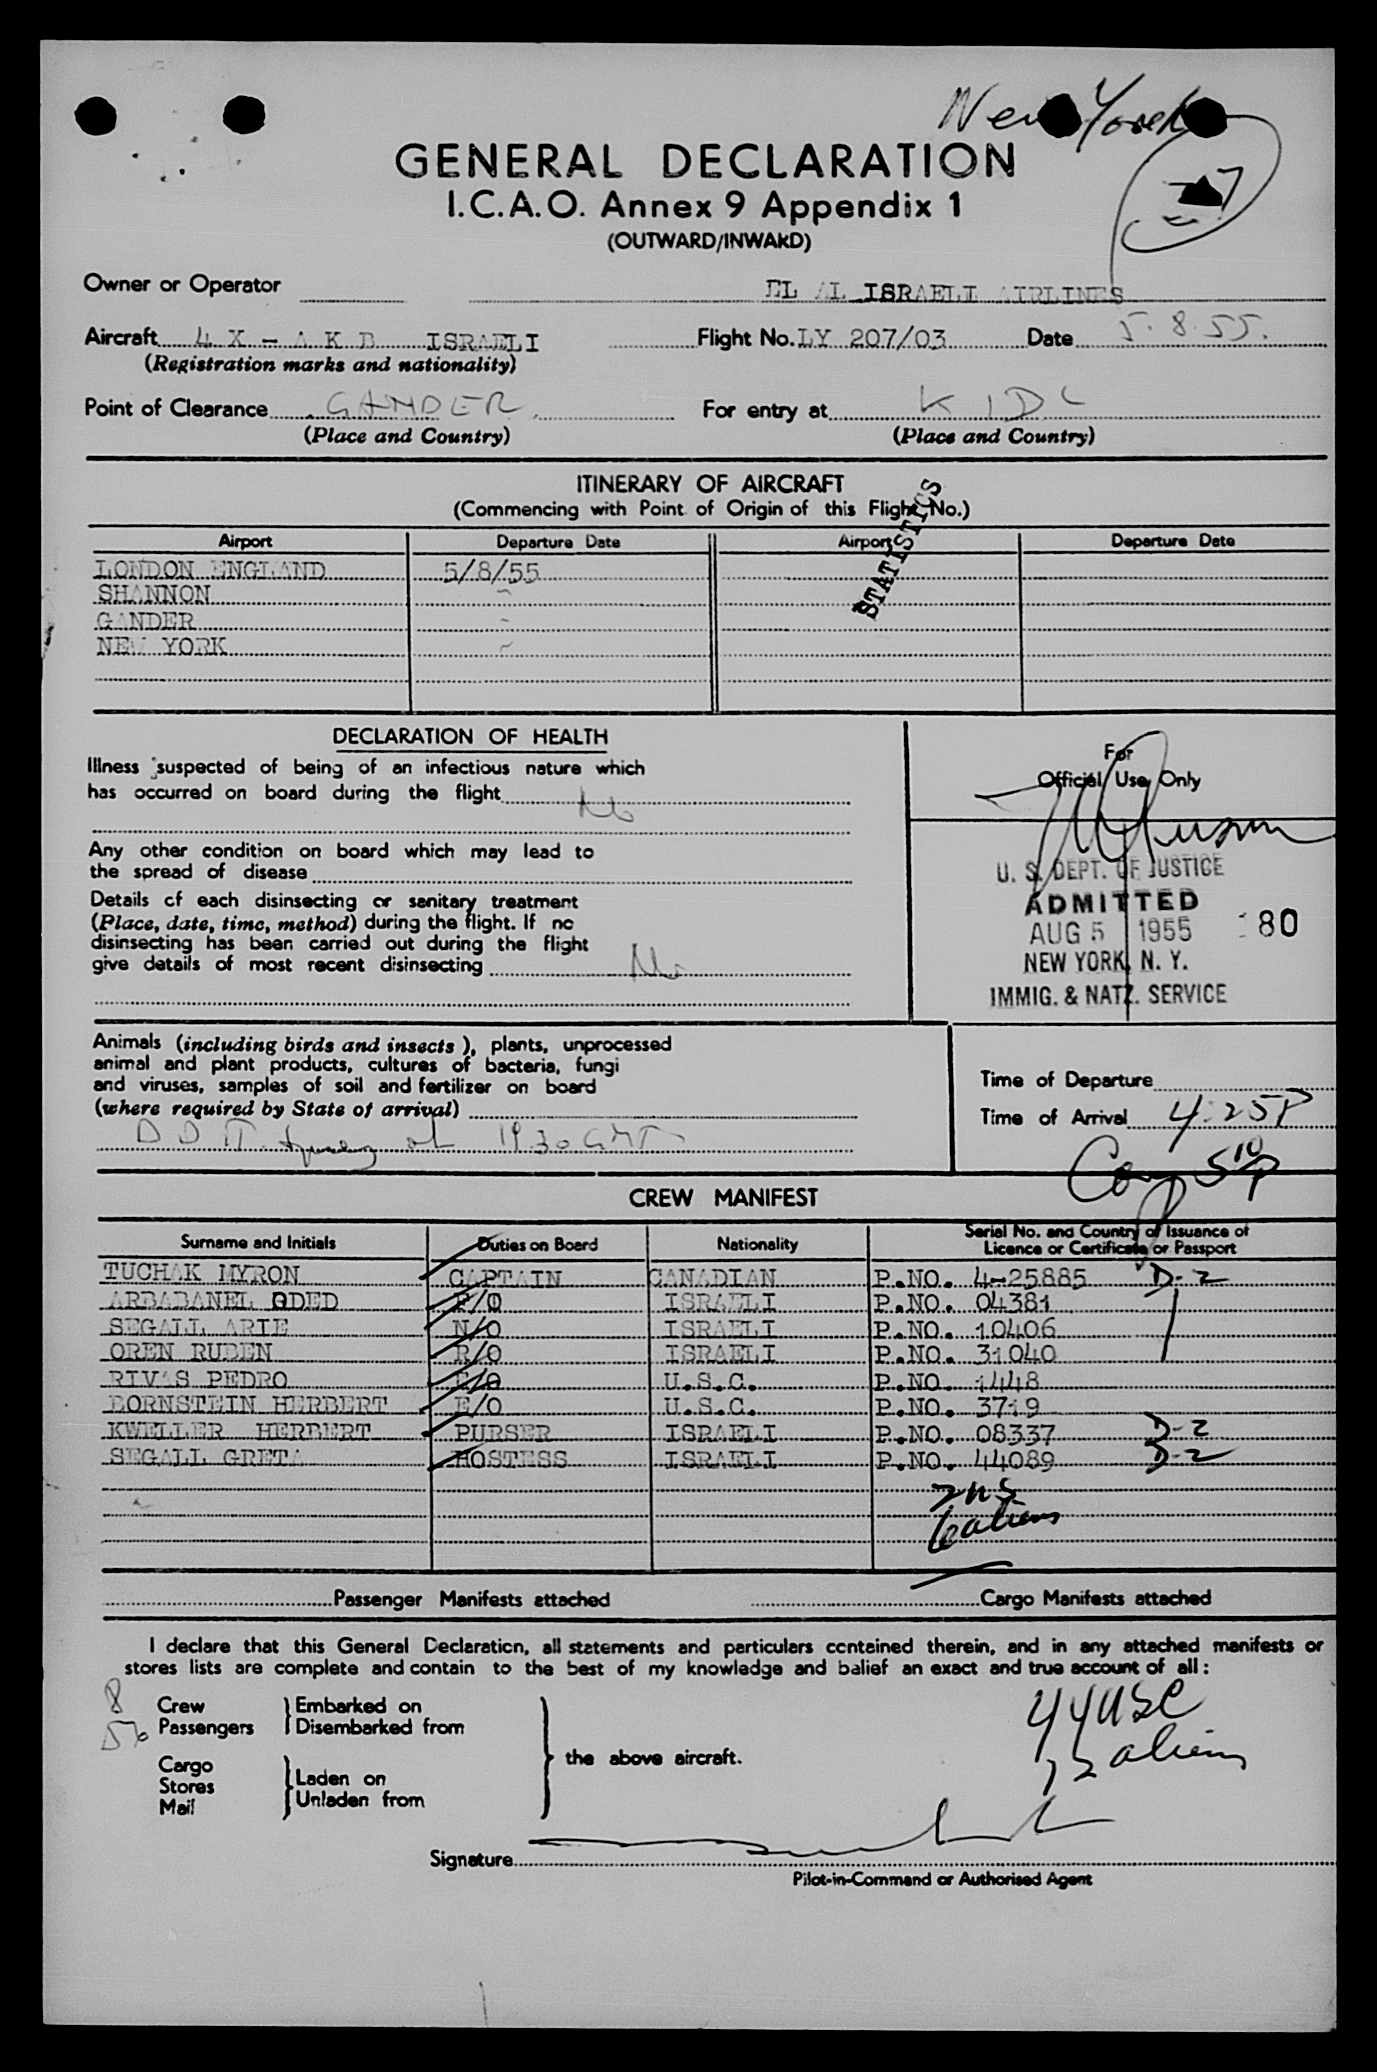 New York
GENERAL DECLARATION
I.C.A.O. Annex 9 Appendix 1
(OUTWARD/INWARD)
Owner or Operator EL AL ISRAELI AIRLINES
Aircraft 4 X - A K B ISRAELI Flight No. LY 207/03 Date 5.8.55.
(Registration marks and nationality)
Point of Clearance GANDER For entry at KIDL
(Place and Country) (Place and Country)
ITINERARY OF AIRCRAFT
(Commencing with Point of Origin of this Flight No.)
STATISTICS
Airport Departure Date Airport Departure Date
LONDON ENGLAND 5/8/55
SHANNON
GANDER
NEW YORK
DECLARATION OF HEALTH
Illness suspected of being of an infectious nature which
has occurred on board during the flight No
Any other condition on board which may lead to
the spread of disease
Details of each disinsecting or sanitary treatment
(Place, date, time, method) during the flight. If no
disinsecting has been carried out during the flight
give details of most recent disinsecting No
For
Official Use Only
U. S. DEPT. OF JUSTICE
ADMITTED
AUG 5 1955 80
NEW YORK, N. Y.
IMMIG. & NATZ. SERVICE
Animals (including birds and insects), plants, unprocessed
animal and plant products, cultures of bacteria, fungi
and viruses, samples of soil and fertilizer on board
(where required by State of arrival)
DDT at 1930 GMT
Time of Departure
Time of Arrival 4:25P
510P
CREW MANIFEST
Surname and Initials Duties on Board Nationality Serial No. and Country of Issuance of
Licence or Certificate or Passport
TUCHAK MYRON CAPTAIN CANADIAN P.NO. 4-25885 D-2
ARBABANEL ODED F/O ISRAELI P.NO. 04381
SEGALL ARIE N/O ISRAELI P.NO. 10406
OREN RUBEN R/O ISRAELI P.NO. 31040
RIVAS PEDRO E/O U.S.C. P.NO. 1448
BORNSTEIN HERBERT E/O U.S.C. P.NO. 3719
KWELLER HERBERT PURSER ISRAELI P.NO. 08337 D-2
SEGALL GRETA HOSTESS ISRAELI P.NO. 44089 D-2
6 aliens
Passenger Manifests attached Cargo Manifests attached
I declare that this General Declaration, all statements and particulars contained therein, and in any attached manifests or
stores lists are complete and contain to the best of my knowledge and belief an exact and true account of all:
8 Crew Embarked on
56 Passengers Disembarked from
the above aircraft.
Cargo
Stores Laden on
Mail Unladen from
44 USC
12 aliens
Signature
Pilot-in-Command or Authorised Agent